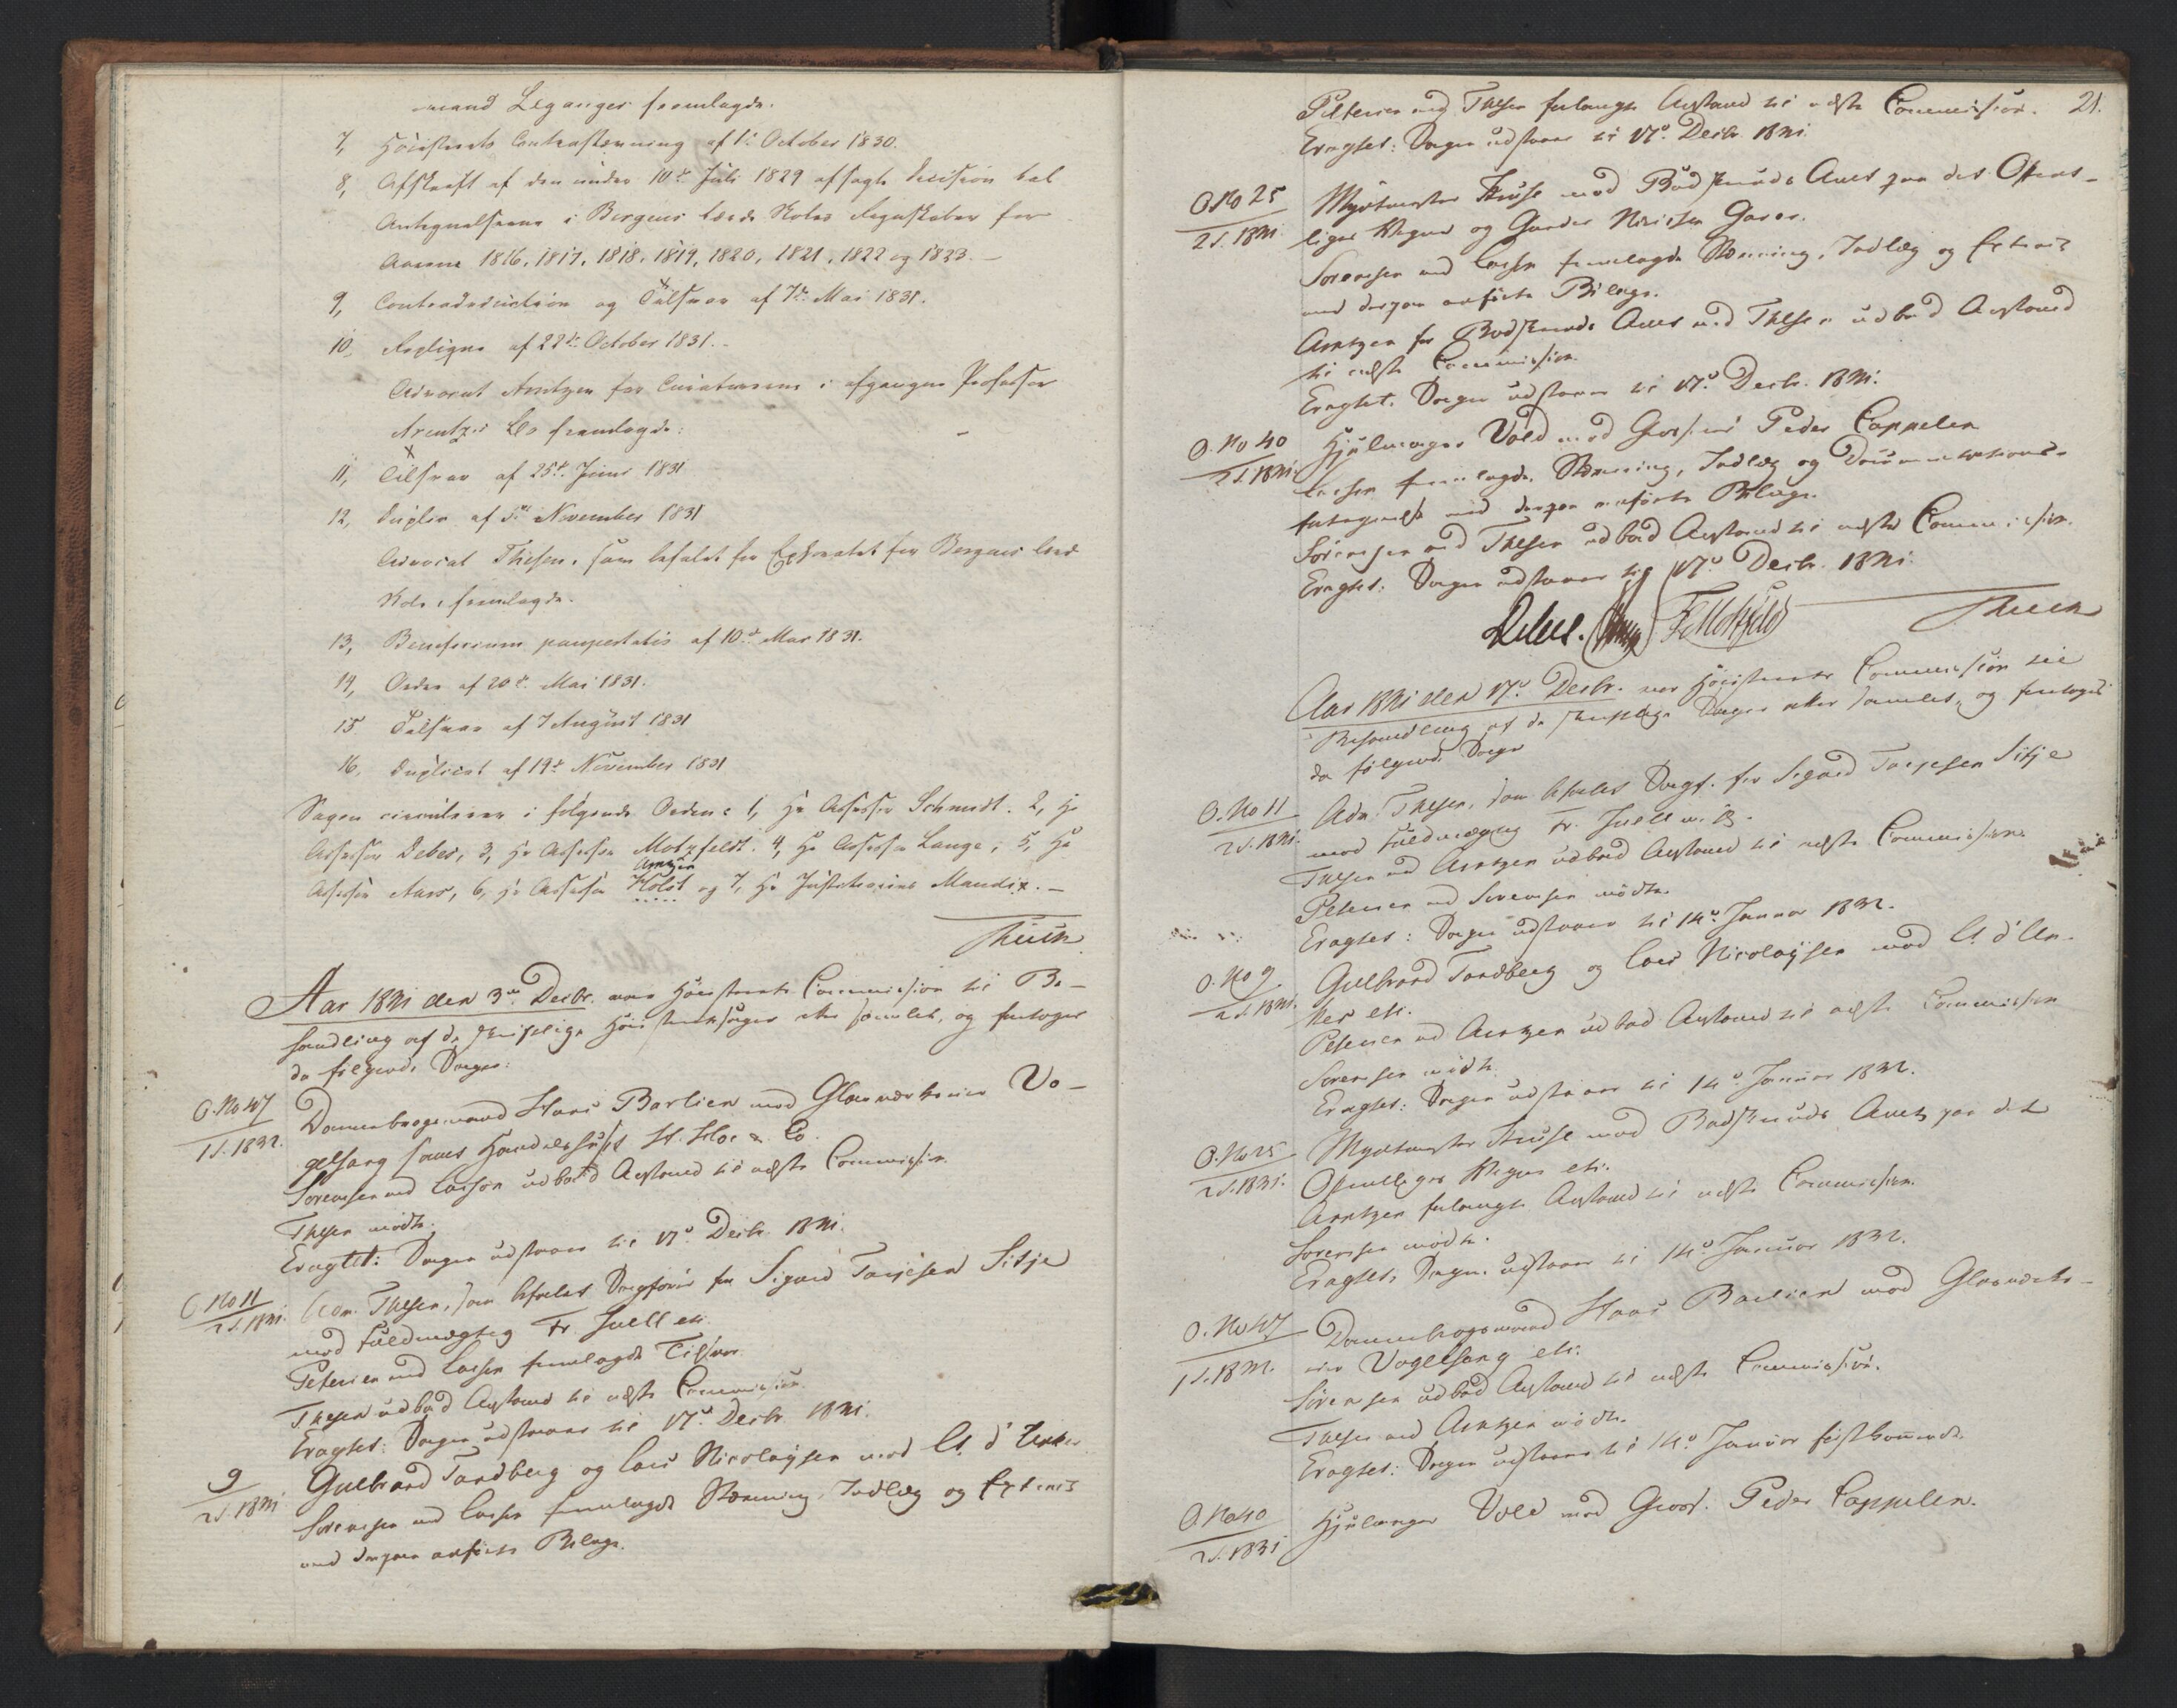 mand Leganger fremlagde.
7, Höiesterets Contrastævning af 1t October 1830.
8, Afskrift af den under 10de Juli 1829 afsagte Decision
Antegnelserne i Bergens lærde Skoles Regnskaber for
Aarene 1816, 1817, 1818, 1819, 1820, 1821, 1822 og 1823. —
9, Contradeduction og Tilsvar af 7de Mai 1831.
10, Repliqve af 22de October 1831.
Advocat Arntzen for Curatorerne i afgangne Professor
Arentz's Bo fremlagde:
11, Tilsvar af 25de Juni 1831
12, Duplik af 5te November 1831
Advocat Thesen, som befalet for Bergens lærde
Skole, fremlagde.
13, Beneficium paupertatis af 10de Mai 1831.
14, Orden af 20de Mai 1831.
15 Tilsvar af 7 August 1831
16, Duplicat af 19de November 1831
Sagen circulerer i følgende Orden: 1, Hr Assessor Schmidt. 2, Hr
Assessor Debes, 3, Hr Assessor Motzfeldt. 4, Hr Assessor Lange, 5, Hr
Arntzen
Assessor Aars, 6, Hr Assessor Holst og 7, Hr Justitiarius Mandix. —
Aar 1831 den 3de Decbr. var Höiesterets Commission til Be-
handling af de skriftlige Höiesteretssager atter samlet, og foretoges
da følgende Sager:
O. No 47
1 S. 1832.
Dannebrogsmand Hans Barlien mod Glasværkseier Vo-
gelsang samt Handelshuset H. Hoe & Co.
Sörensen med Lasson udbad Anstand til næste Commission.
Thesen mødte.
Eragtet: Sagen udstaaer til 17de Decbr. 1831.
O. No 11
2 S. 1831.
Adv. Thesen, som befalet Sagfører for Sigurd Tarjesen Sitje
mod Fuldmægtig Fr. Juell etc.
Petersen med Lasson fremlagde Tilsvar.
Thesen udbad Anstand til næste Commission.
Eragtet: Sagen udstaaer til 17de Decbr. 1831.
9
2 S. 1831
Gulbrand Tandberg og Lars Nicolaysen mod C. d'Unker
Sörensen med Lasson fremlagde Stævning, Indlæg og Extract
med derpaa anførte Bilage.
21.
Petersen med Thesen forlangte Anstand til næste Commission.
Eragtet: Sagen udstaaer til 17de Decbr. 1831.
O. No 25
2 S. 1831.
Myntmester Kruse mod Budskruds Amt paa det Offent-
liges Vegne og Gaarder
Sörensen med Lasson fremlagde Stævning, Indlæg og Extract
med derpaa anførte Bilage.
Arntzen for Budskruds Amt med Thesen udbad Anstand
til næste Commission.
Eragtet. Sagen udstaaer til 17de Decbr. 1831.
O. No 40
2 S. 1831.
Hjulmager Vold mod Grosserer Peder Cappelen
Lasson fremlagde Stævning, Indlæg og Documentations-
med derpaa anførte Bilage.
Sörensen med Thesen udbad Anstand til næste Commission.
Eragtet: Sagen udstaaer til 17de Decbr. 1831.
Debes. F. Motzfeldt
Aar 1831 den 17de Decbr. var Höiesterets Commission til
Behandling af de skriftlige Sager atter samlet, og foretoges
da følgende Sager
O. No 11
2 S. 1831.
Adv. Thesen, som befalet Sagf. for Sigurd Tarjesen Sitje
mod Fuldmægtig Fr. Juell
Thesen med Arntzen udbad Anstand til næste Commission.
Petersen med Sörensen mødte.
Eragtet: Sagen udstaaer til 14de Januar 1832.
O. No 9
2 S. 1831.
Gulbrand Tandberg og Lars Nicolaysen mod C. d'Un-
ker etc.
Petersen med Arntzen udbad Anstand til næste Commission
Sörensen mødte.
Eragtet: Sagen udstaaer til 14de Januar 1832.
O. No 25
2 S. 1831.
Myntmester Kruse mod Budskruds Amt paa det
Offentliges Vegne etc.
Arntzen forlangte Anstand til næste Commission.
Sörensen mødte.
Eragtet: Sagen udstaaer til 14de Januar 1832.
O. No 47
1 S. 1832.
Dannebrogsmand Hans Barlien mod Glasværks-
eier Vogelsang etc.
Sörensen udbad Anstand til næste Commission.
Thesen med Arntzen mødte.
Eragtet: Sagen udstaaer til 14de Januar førstkommende.
O. No 40
2 S. 1831
Hjulmager Vold mod Gross. Peder Cappelen.